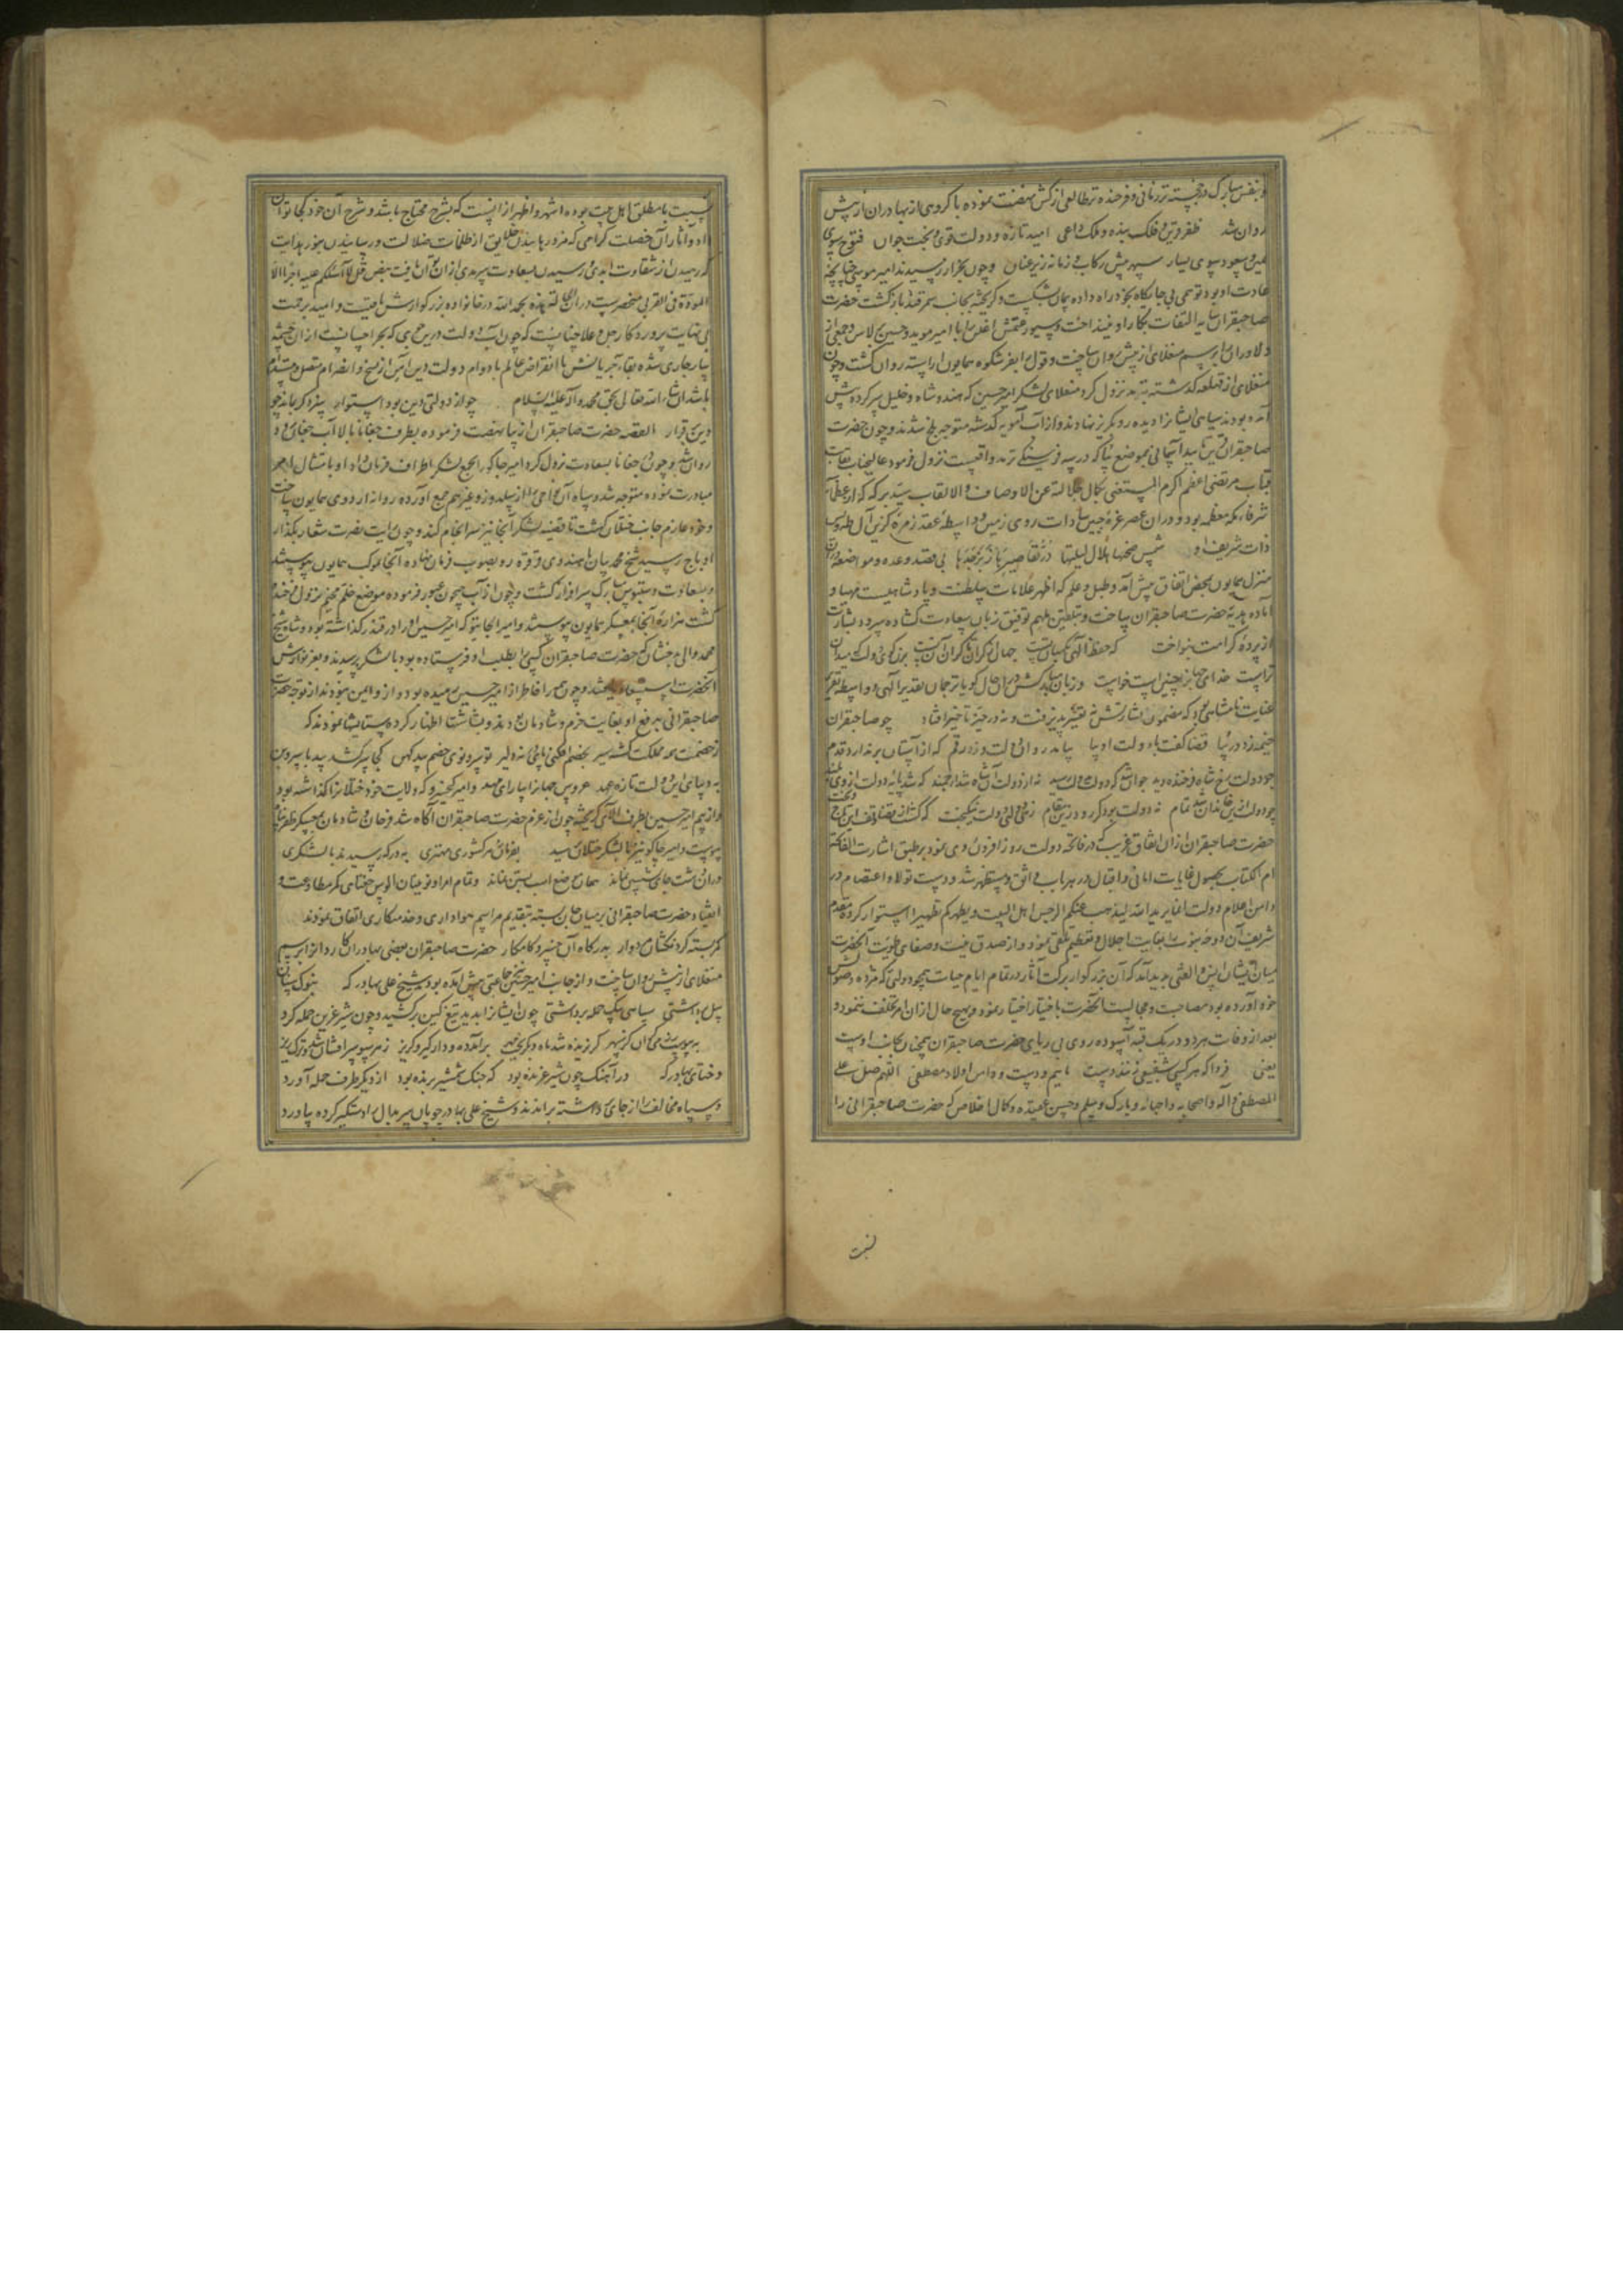 و بنفس مبارک در خجسته تر زمانی و فرخنده تر طالعی از کش نهضت نموده با گروهی از بهادران از پیش
روان شد ظفر قرین و فلک بنده و ملک داعی امید تازه و دولت قوی و بخت جوان فتوح سوی
یمین و سعود سوی یسار سپهر پیش رکاب و زمانه زیر عنان و چون بخزار رسیدند امیر موسی چنانچه
عادت او بود توهمی بی جایگاه بخود راه داده بهمان بشکست و گریخته بجانب سمرقند بازگشت حضرت
صاحبقران سایه التفات بکار او نینداخت و سیورغتمش اغلن را با امیر موید و حسین برلاس و جمعی از
دلاوران برسم منغلای از پیش روان ساخت و قول را بفر شکوه همایون آراسته روان گشت و چون
منغلای از قهلغه گذشته بترمد نزول کرد منغلای لشکر امیر حسین که هندو شاه و خلیل سر کرده پیش
آمده بودند سیاهی ایشان را دیده رو بگریز نهادند و از آب آمویه گذشته متوجه بلخ شدند و چون حضرت
صاحبقران بموضع بیا که در سه فرسنگی ترمد واقعست نزول فرمود عالیجناب نقابت
قباب مرتضی اعظم اکرم المستغنی بکمال جلالته عن الاوصاف والالقاب سید برکه که از عظمای
شرفاء مکه معظمه بود و در آن عصر غره جبین سادات روی زمین و واسطه عقد زمره گزین آل طه و یس
ذات شریف او شمس ضحیها هلال لیلتها در تقاصیرها زبرجدها بی قصد و عده و مواضعه در آن
منزل همایون بمحض اتفاق پیش آمد و طبل و علم که اظهر علامات سلطنت و پادشاهیست مهیا و
آماده بهدیه حضرت صاحبقران ساخت و بتلقین ملهم توفیق زبان بسعادت گشاده سرود بشارت
از پرده کرامت بنواخت که حفظ الهی نگهبان تست
تراست خدای جهان را چنین است خواست و زبان مبارکش در آن حال گویا ترجمان تقدیر الهی و واسطه تقریر
عنایت نامتناهی بود که مضمون بشارتش نه تغییر پذیرفت و نه در حیز تاخیر افتاد چو صاحبقران
خیمه زد در بیا قضا گفت با دولت او بیا بیامد روان دولت و زد رقم که از آستان برندارد قدم
چو دولت رخ شاه فرخنده دید جوان شد که دولت بدولت رسید نه از دولت آن شاه شد ارجمند که شد پایه دولت از وی بلند
چو دولت ازین خاندان شد تمام نه دولت بود گر رود زین مقام زهی دولت نیکبخت
حضرت صاحبقران از آن اتفاق غریب که در فاتحه دولت روز افزون روی نمود بر طبق اشارت الفاتحه
ام الکتاب بحصول غایات امانی و اقبال در هر باب واثق و مستظهر شد و دست تولا و اعتصام در
دامن اعلام دولت انما یرید الله لیذهب عنکم الرجس اهل البیت و یطهرکم تطهیرا استوار کرده مقدم
شریف آن دوحه نبوت را بغایت اجلال و تعظیم تلقی نمود و از صدق نیت و صفای طویت آنحضرت
میان ایشان انس و الفتی پدید آمد که آن بزرگوار برکت آثار در تمام ایام حیات همچو دولتی که مژده حصولش
خود آورده بود مصاحبت و مجالست آنحضرت باختیار اختیار نمود و بهیچ حال از آن امر تخلف ننمود و
بعد از وفات هر دو در یک قبه آسوده روی بی ریای حضرت صاحبقران همچنان بجانب اوست
یعنی فردا که هر کسی بشفیعی زنند دست ماییم و دست و دامن اولاد مصطفی اللهم صل علی
المصطفی و آله و اصحابه و احبائه و بارک و سلم و حسن عقیده و کمال اخلاص که حضرت صاحبقرانی را
نسبت
نسبت با مطلق اهل بیت بوده اشهر و اظهر از آنست که بشرح محتاج باشد و شرح آن خود کجا توان
داد و آثار آن خصلت گرامی که خلایق از ظلمات ضلالت و رسانیدن بنور هدایت
که رهیدن از شقاوت ابدی و رسیدن بسعادت سرمدی از آن توان یافت بنص قل لا اسئلکم علیه اجرا الا
المودة فی القربی منحصرست در آن بحمد الله در خانواده بزرگوارش باقیست و امید برحمت
بی نهایت پروردگار جل و علا چنانست که چون آب دولت درین جوی که بحر احسانست از آن چشمه
سار جاری شده بقاء جریانش تا انقراض عالم با دوام دولت دین ایمن از نسخ و انصرام متصل و مستدام
باشد ان شاء الله تعالی بحق محمد و آله علیه السلام چو از دولتی دین بود استوار سزد گر بماند چو
دین برقرار القصه حضرت صاحبقران از بیا نهضت فرموده بطرف چغانیان بالا آب جغان رود
روان شد و چون بجغانا بسعادت نزول کرد امیر جاکو را بجمع لشکر اطراف فرمان داد او بامتثال امر
مبادرت نموده متوجه شد و سپاه آن نواحی را از بیلدوز و غیرهم جمع آورده روانه اردوی همایون ساخت
و خود عازم جانب ختلان گشت تا قضیه لشکر آنجا نیز سرانجام کند و چون رایت نصرت شعار بگذار
اوباج رسید شیخ محمد بیان با هندوی و قرقره رو بصوب فرمان نهاده آنجا بموکب همایون پیوستند
و بسعادت دستبوس مبارک سرافراز گشت و چون از آب جیحون عبور فرموده موضع خلم مخیم نزول فرخنده
گشت هزاره آنجا بمعسکر همایون پیوستند و امیر الجایتو که امیر حسین او را در قندز گذاشته بود و شاه شیخ
محمد والی بدخشان که حضرت صاحبقران کسی بطلب او فرستاده بود با لشکر برسیدند و بعز نوازش
آنحضرت استسعاد یافتند و چون همه را خاطر از امیر حسین رمیده بود و ازو ایمن نبودند از توجه حضرت
صاحبقرانی بدفع او بغایت خرم و شادمان بودند و بشاشتها اظهار کرده ستایشها نمودند که
ز خصمت همه مملکت گشته سیر بخصم افکنی پای نه دلیر تو سرو نوی خصم بید کهن کجا سر کشد بید با سروبن
به دیبای این دولت تازه عهد عروس جهان را بیارای مهد و امیر کیخسرو که ولایت خود ختلان را گذاشته بود
و از بیم امیر حسین بطرف آلای گریخته چون از عزم حضرت صاحبقران آگاه شد فرحان و شادمان بمعسکر ظفر پناه
پیوست و امیر جاکو نیز با لشکر ختلان رسید بفرمان هر کشوری مهتری بدرگه رسیدند با لشکری
در آن دشت جای نشستن نماند همان موضع اسب بستن نماند و تمام امرا و نوینان الوس جغتای کمر مطاوعت و
انقیاد حضرت صاحبقرانی بر میان جان بسته بتقدیم مراسم هواداری و خدمتکاری اتفاق نمودند
کمر بسته گردنکشان دیار بدرگاه آن خسرو کامکار حضرت صاحبقران بعضی بهادران کاردان را برسم
منغلای از پیش روان ساخت و از جانب امیر حسین نیز جماعتی پیش آمده بود شیخ علی بهادر که بنوک سنان
پیل برداشتی سپاهی بیک حمله برداشتی چون ایشان را بدید تیغ کین برکشید و چون شیر غرین حمله کرد
بر آمد ده و دار گیر و گریز
و ختای بهادر که در آهنگ چون شیر غرنده بود که جنگ شمشیر برنده بود از دیگر طرف حمله آورد
و سپاه مخالف را از جای برداشته براندند و شیخ علی بهادر جوپان سربدال را دستگیر کرده بیاورد